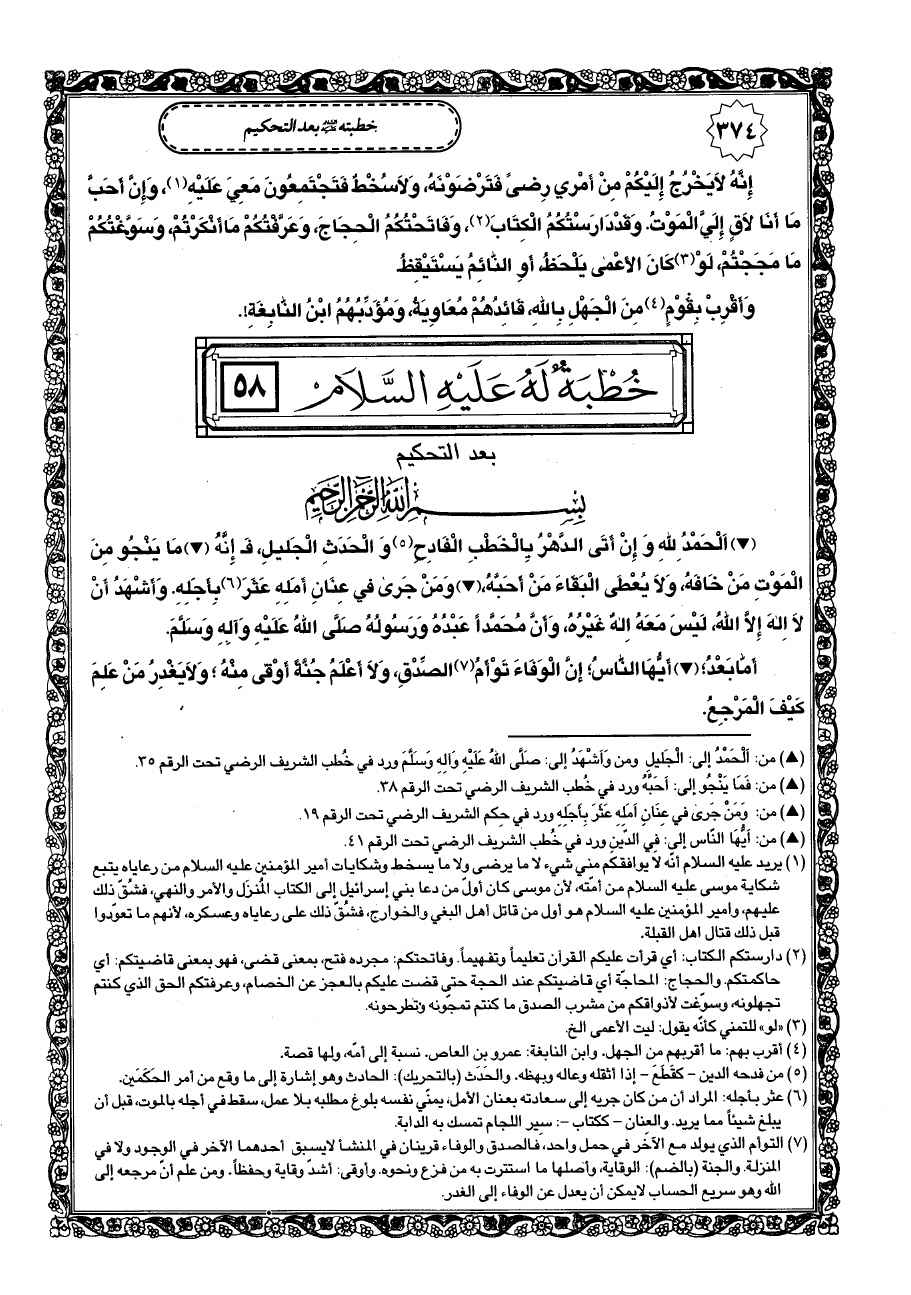 ٣٧٤
خطبته عليه السلام بعد التحكيم
إِنَّهُ لاَيَخْرُجُ إِلَيْكُمْ مِنْ أَمْرِي رِضىً فَتَرْضَوْنَهُ، وَلاَسُخْطٌ فَتَجْتَمِعُونَ مَعِيَ عَلَيْهِ(١)، وَإِنَّ أَحَبَّ
مَا أَنَا لاَقٍ إِلَيَّ الْمَوْتُ. وَقَدْدَارَسْتُكُمُ الْكِتَابَ(٢)، وَفَاتَحْتُكُمُ الْحِجَاجَ، وَعَرَّفْتُكُمْ مَاأَنْكَرْتُمْ، وَسَوَّغْتُكُمْ
مَا مَجَجْتُمْ، لَوْ(٣)كَانَ الأَعْمٰى يَلْحَظُ، أَوِ النَّائِمُ يَسْتَيْقِظُ
وَأَقْرِبْ بِقَوْمٍ(٤)مِنَ الْجَهْلِ بِاللهِ، قَائِدُهُمْ مُعَاوِيَةُ، وَمُؤَدِّبُهُمُ ابْنُ النَّابِغَةِ!.
خُطْبَةٌ لَهُ عَلَيْهِ السَّلاَمْ
٥٨
بعد التحكيم
بِسْمِ اللهِ الرَّحْمٰنِ الرَّحِيمِ
(▼) اَلْحَمْدُ لله وَ إِنْ أَتَى الدَّهْرُ بِالْخَطْبِ الْفَادِحِ(٥)وَ الْحَدَثِ الْجَلِيلِ، فَـ إِنَّهُ (▼)مَا يَنْجُو مِنَ
الْمَوْتِ مَنْ خَافَهُ، وَلاَ يُعْطَى الْبَقَاءَ مَنْ أَحَبَّهُ،(▼)وَمَنْ جَرىٰ في عِنَانِ أَمَلِهِ عَثَرَ(٦)بِأَجَلِهِ. وَأَشْهَدُ أَنْ
لاَ اِلهَ إِلاَّ اللهُ، لَيْسَ مَعَهُ اِلهٌ غَيْرُهُ، وَأَنَّ مُحَمَّداً عَبْدُهُ وَرَسُولُهُ صَلَّى اللهُ عَلَيْهِ وَآلِهِ وَسَلَّمَ.
أَمَّابَعْدُ؛ (▼) أَيُّهَا النَّاسُ؛ إِنَّ الْوَفَاءَ تَوْأَمُ(٧)الصِّدْقِ، وَلاَ أَعْلَمُ جُنَّةً أَوْقىٰ مِنْهُ ؛ وَلاَيَغْدِرُ مَنْ عَلِمَ
كَيْفَ الْمَرْجِعُ.
(▲) من: اَلْحَمْدُ إلى: الْجَلِيلِ ومن وَأَشْهَدُ إلى: صَلَّى اللهُ عَلَيْهِ وَالِهِ وَسَلَّمَ ورد في خُطب الشريف الرضي تحت الرقم ٣٥.
(▲) من: فَمَا يَنْجُو إلى: أَحَبَّهُ ورد في خُطب الشريف الرضي تحت الرقم ٣٨.
(▲) من: وَمَنْ جَرىٰ في عِنَانِ أَمَلِهِ عَثَرَ بِأَجَلِهِ ورد في حِكم الشريف الرضي تحت الرقم ١٩.
(▲) من: أَيُّهَا النَّاس إلى: فِي الدِّينِ ورد في خُطب الشريف الرضي تحت الرقم ٤١.
(١) يريد عليه السلام أنّه لا يوافقكم مني شيء لا ما يرضى ولا ما يسخط وشكايات أمير المؤمنين عليه السلام من رعاياه يتبع
شكاية موسى عليه السلام من أمّته، لأن موسى كان أول من دعا بني إسرائيل إلى الكتاب المُنزل والأمر والنهي، فشُقّ ذلك
عليهم، وامير المؤمنين عليه السلام هو أول من قاتل أهل البغي والخوارج، فشُقّ ذلك على رعاياه وعسكره، لأنهم ما تعوّدوا
قبل ذلك قتال اهل القبلة.
(٢) دارستكم الكتاب: أي قرأت عليكم القرآن تعليماً وتفهيماً. وفاتحتكم: مجرده فتح، بمعنى قضى، فهو بمعنى قاضيتكم: أي
حاكمتكم. والحجاج: المحاجّة أي قاضيتكم عند الحجة حتى قضت عليكم بالعجز عن الخصام، وعرفتكم الحق الذي كنتم
تجهلونه، وسوّغت لأذواقكم من مشرب الصدق ما كنتم تمجّونه وتطرحونه.
(٣) «لو» للتمني كأنّه يقول: ليت الأعمى الخ.
(٤) أقرب بهم: ما أقربهم من الجهل. وابن النابغة: عمرو بن العاص. نسبة إلى أمّه، ولها قصة.
(٥) من فدحه الدين – كقَطَعَ – إذا أثقله وعاله وبهظه. والحَدَث (بالتحريك): الحادث وهو إشارة إلى ما وقع من أمر الحكَمَين.
(٦) عثر بأجله: المراد أن من كان جريه إلى سعادته بعنان الأمل، يمنّي نفسه بلوغ مطلبه بلا عمل، سقط في أجله بالموت، قبل أن
يبلغ شيئاً مما يريد. والعنان – ككتاب –: سير اللجام تمسك به الدابة.
(٧) التوأم الذي يولد مع الآخر في حمل واحد، فالصدق والوفاء قرينان في المنشأ لايسبق أحدهما الآخر في الوجود ولا في
المنزلة. والجنة (بالضم): الوقاية، وأصلها ما استترت به من فزع ونحوه. وأوقى: أشدّ وقاية وحفظاً. ومن علم أنّ مرجعه إلى
الله وهو سريع الحساب لايمكن أن يعدل عن الوفاء إلى الغدر.